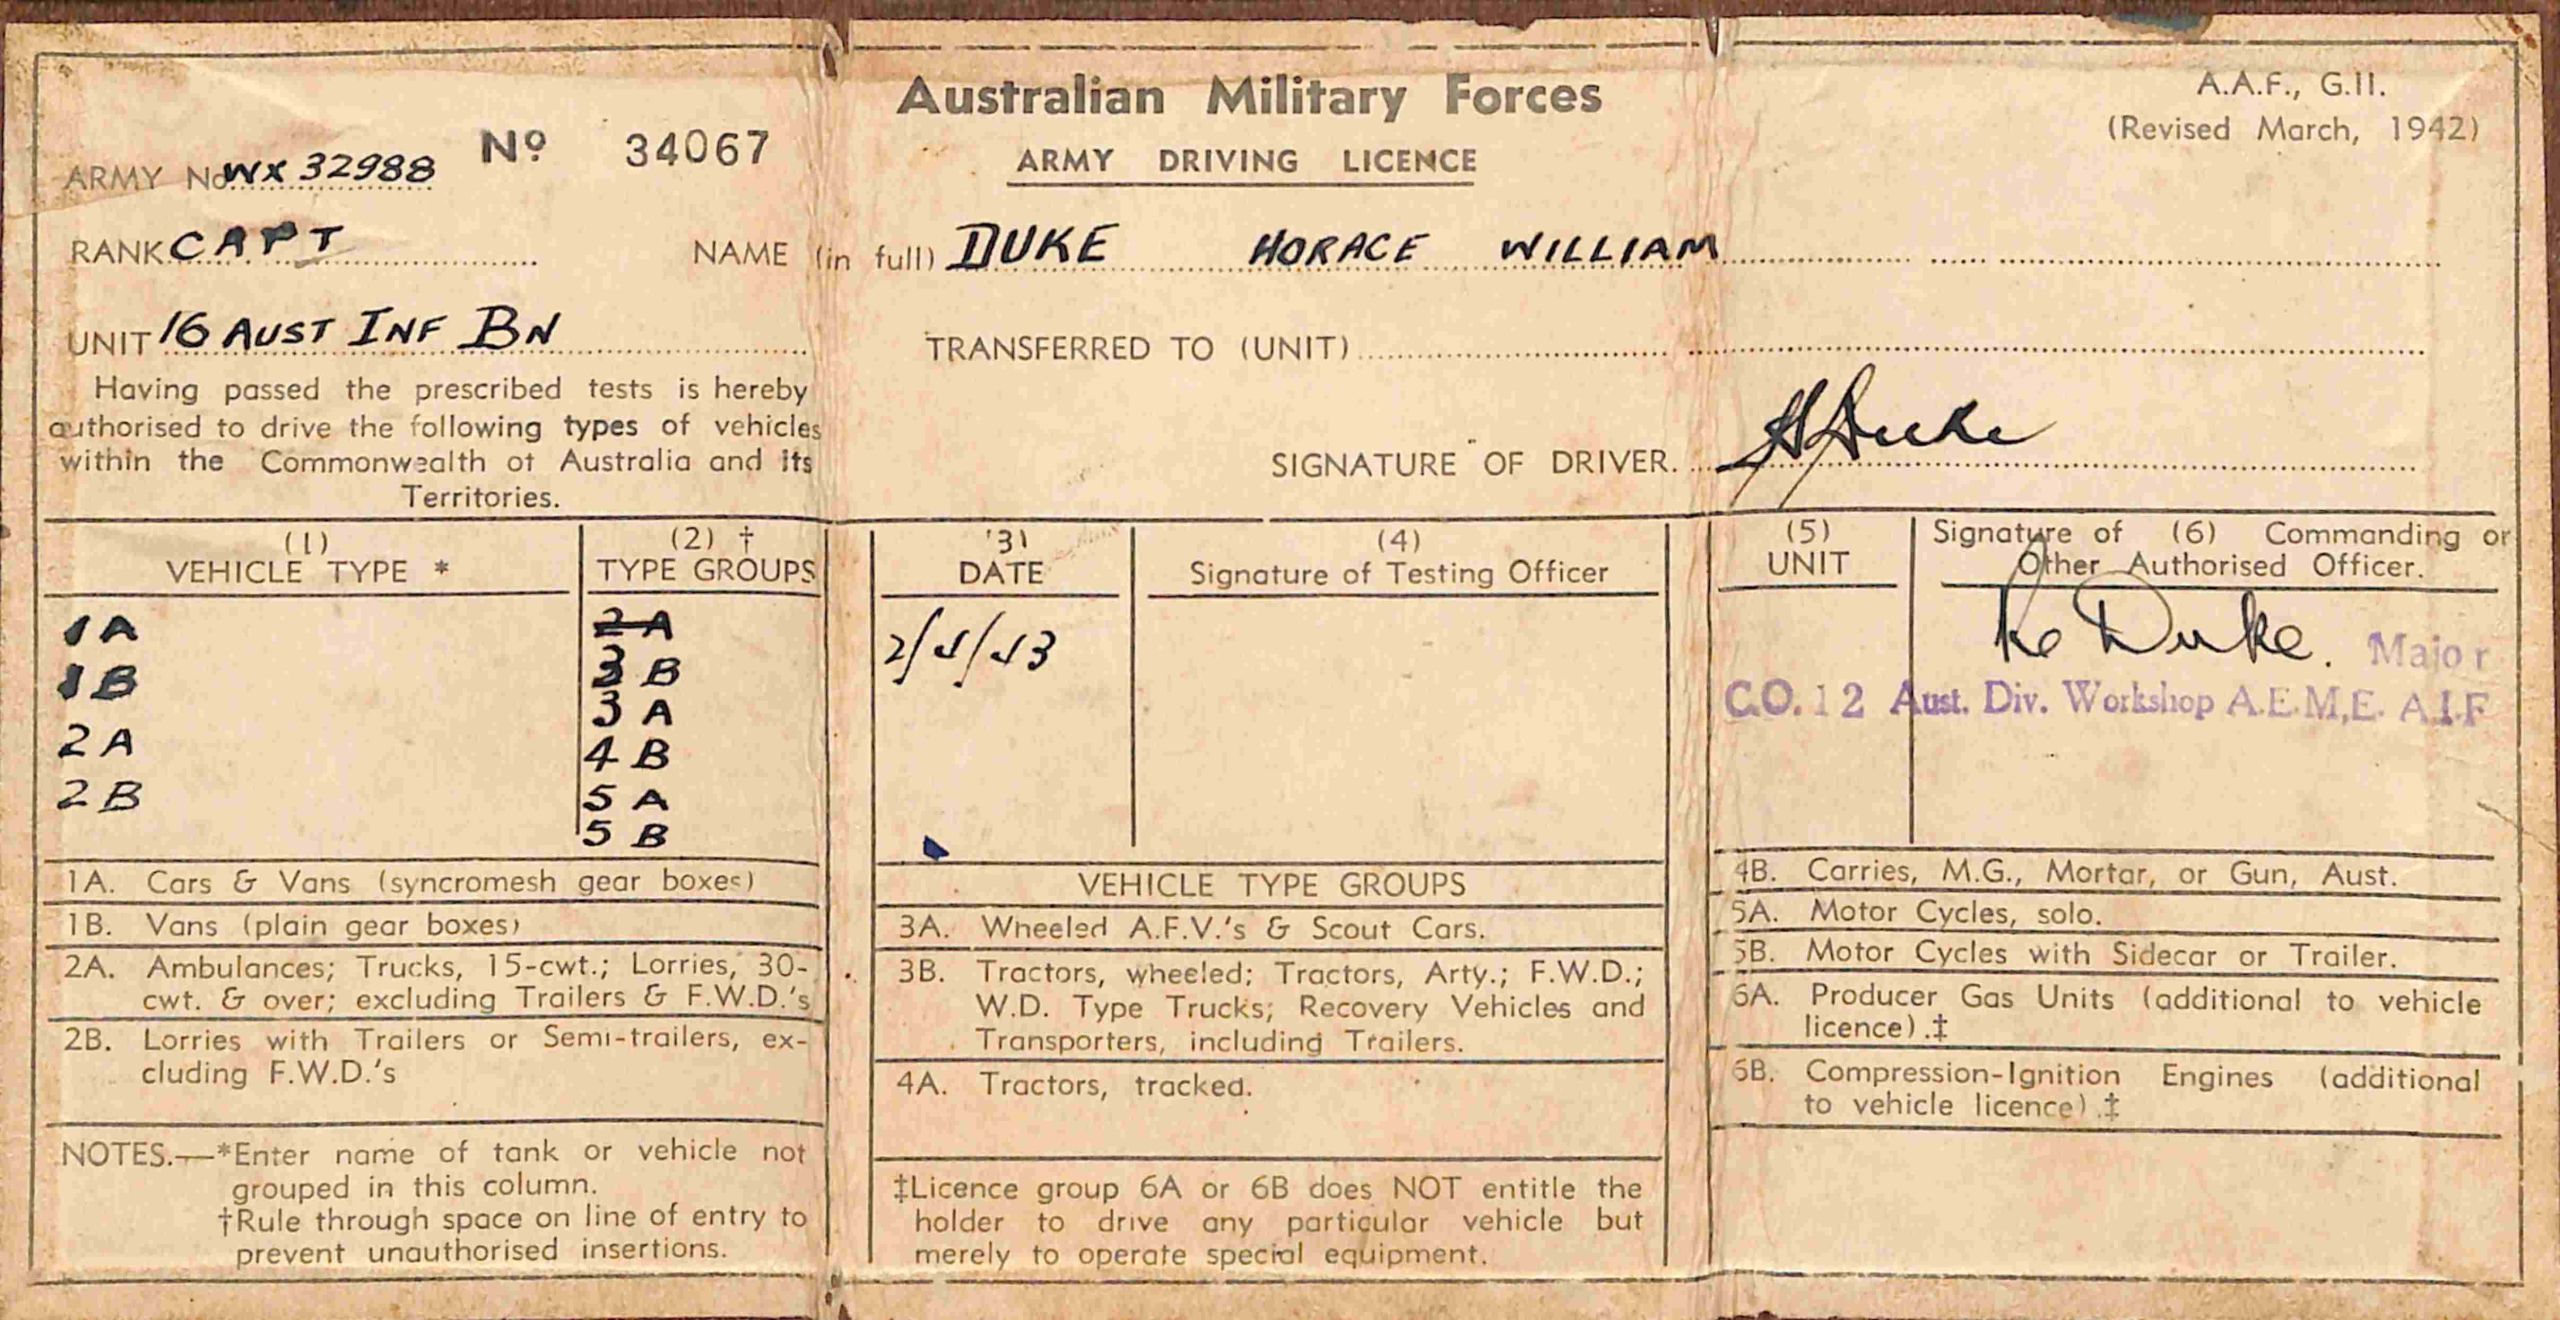 Australian Military Forces
ARMY DRIVING LICENCE
A.A.F., G.II.
(Revised March, 1942)
ARMY No WX 32988
No 34067
RANK CAPT
NAME (in full) DUKE HORACE WILLIAM
UNIT 16 AUST INF BN
TRANSFERRED TO (UNIT)
Having passed the prescribed tests is hereby
authorised to drive the following types of vehicles
within the Commonwealth of Australia and its
Territories.
SIGNATURE OF DRIVER. H Duke
(1)
VEHICLE TYPE *
1A
1B
2A
2B
(2) †
TYPE GROUPS
2A
3B
3A
4B
5A
5B
(3)
DATE
2/4/43
(4)
Signature of Testing Officer
(5)
UNIT
Signature of (6) Commanding or
Other Authorised Officer.
Duke. Major
C.O. 12 Aust. Div. Workshop A.E.M.E. A.I.F
1A. Cars & Vans (syncromesh gear boxes)
1B. Vans (plain gear boxes)
2A. Ambulances; Trucks, 15-cwt.; Lorries, 30-
cwt. & over; excluding Trailers & F.W.D.'s
2B. Lorries with Trailers or Semi-trailers, ex-
cluding F.W.D.'s
NOTES.—*Enter name of tank or vehicle not
grouped in this column.
†Rule through space on line of entry to
prevent unauthorised insertions.
VEHICLE TYPE GROUPS
3A. Wheeled A.F.V.'s & Scout Cars.
3B. Tractors, wheeled; Tractors, Arty.; F.W.D.;
W.D. Type Trucks; Recovery Vehicles and
Transporters, including Trailers.
4A. Tractors, tracked.
‡Licence group 6A or 6B does NOT entitle the
holder to drive any particular vehicle but
merely to operate special equipment.
4B. Carries, M.G., Mortar, or Gun, Aust.
5A. Motor Cycles, solo.
5B. Motor Cycles with Sidecar or Trailer.
6A. Producer Gas Units (additional to vehicle
licence).‡
6B. Compression-Ignition Engines (additional
to vehicle licence).‡